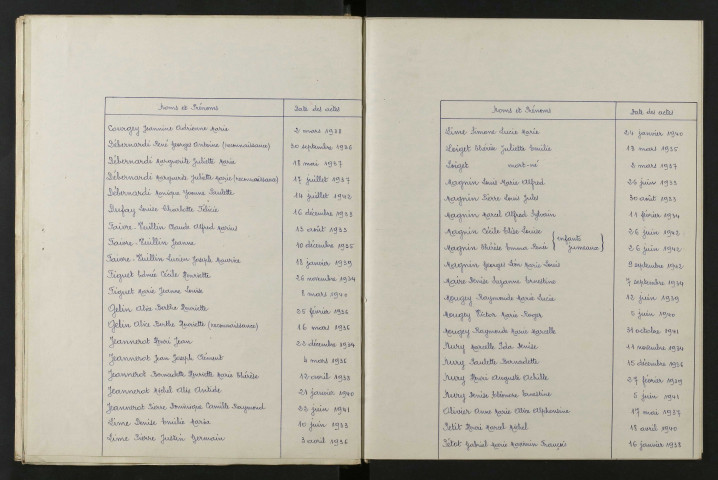 Noms et Prénoms Date des actes
Courgey Jeannine Adrienne Marie 2 mars 1938
Débernardi René Georges Antoine (reconnaissance) 30 septembre 1936
Débernardi Marguerite Juliette Marie 18 mai 1937
Débernardi Marguerite Juliette Marie (reconnaissance) 17 juillet 1937
Débernardi Monique Yvonne Paulette 14 juillet 1942
Dufay Louise Charlotte Félicie 16 décembre 1933
Faivre-Vuillin Claude Alfred Marius 13 août 1933
Faivre-Vuillin Jeanne 10 décembre 1935
Faivre-Vuillin Lucien Joseph Maurice 18 janvier 1939
Figuet Edmée Cécile Henriette 26 novembre 1934
Figuet Marie Jeanne Louise 8 mars 1940
Gelin Alice Berthe Henriette 25 février 1936
Gelin Alice Berthe Henriette (reconnaissance) 16 mars 1936
Jeannerot Henri Jean 22 décembre 1934
Jeannerot Jean Joseph Clément 4 mars 1936
Jeannerot Bernadette Henriette Marie Thérèse 12 avril 1938
Jeannerot Michel Alix Aristide 21 janvier 1940
Jeannerot Pierre Dominique Camille Raymond 22 juin 1941
Lime Denise Emilie Maria 10 juin 1933
Lime Pierre Justin Germain 3 avril 1936
Noms et Prénoms Date des actes
Lime Simone Lucie Marie 24 janvier 1940
Loiget Thérèse Juliette Emilie 18 mars 1935
Loiget mort-né 2 mars 1937
Magnin Louis Marie Alfred 26 juin 1933
Magnin Pierre Louis Jules 30 août 1933
Magnin Marcel Alfred Sylvain 11 février 1934
Magnin Cécile Elise Louise 26 juin 1942
(enfants jumeaux)
Magnin Thérèse Emma Renée 26 juin 1942
Magnin Georges Léon Marie Louis 9 septembre 1942
Maire Denise Suzanne Ernestine 7 septembre 1934
Mougey Raymonde Marie Lucie 12 juin 1939
Mougey Victor Marie Roger 5 juin 1940
Mougey Raymonde Marie Marcelle 31 octobre 1941
Mury Marcelle Ida Denise 11 novembre 1934
Mury Paulette Bernadette 15 décembre 1936
Mury Henri Auguste Achille 27 février 1939
Mury Denise Ernestine 5 juin 1941
Olivier Anne Marie Alix Alphonsine 17 mai 1937
Petit Henri Marcel Michel 18 avril 1940
Pétot Gabriel Marie Maximin François 16 janvier 1938